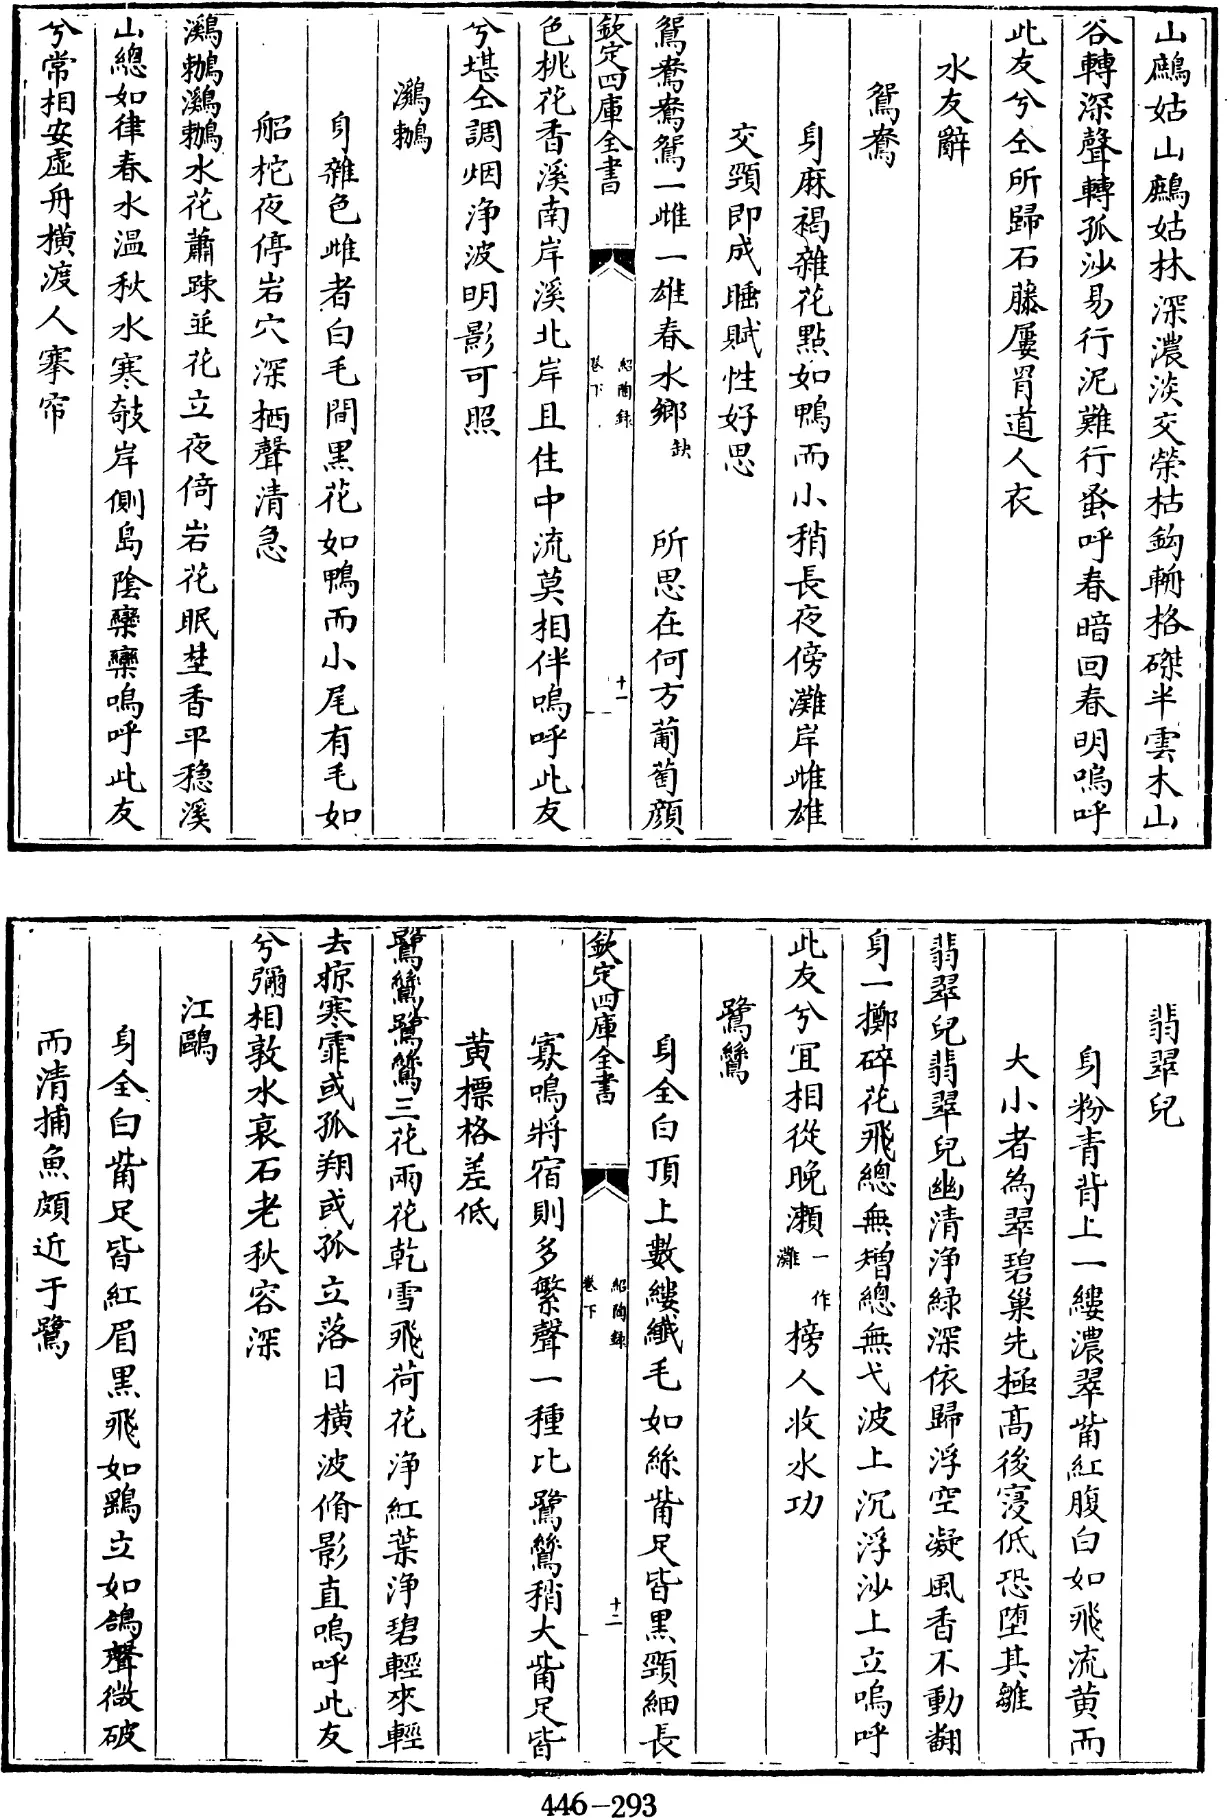 山鷓姑山鷓姑林深濃淡交榮枯鈎輈格磔半雲木山
谷轉深聲轉孤沙易行泥難行蚤呼春暗回春明嗚呼
此友兮仝所歸石藤屨罥道人衣
水友辭
鴛鴦
身麻褐雜花點如鴨而小稍長夜傍灘岸雌雄
交頸即成睡賦性好思
鴛鴦鴦鴛一雌一雄春水鄉缺 所思在何方葡萄顔
欽定四庫全書 紹陶錄 卷下 十一
色桃花香溪南岸溪北岸且住中流莫相伴嗚呼此友
兮堪仝調烟浄波明影可照
鸂鶒
身雜色雌者白毛間黑花如鴨而小尾有毛如
船柁夜停岩穴深栖聲清急
鸂鶒鸂鶒水花蕭踈並花立夜倚岩花眠埜香平穏溪
山總如律春水温秋水寒敧岸側島陰欒欒嗚呼此友
兮常相安虛舟橫渡人搴帘
翡翠兒
身粉青背上一縷濃翠觜紅腹白如飛流黄而
大小者為翠碧巢先極髙後寖低恐堕其雛
翡翠兒翡翠兒幽清浄緑深依歸浮空凝風香不動翻
身一擲碎花飛總無矰總無弋波上沉浮沙上立嗚呼
此友兮宜相從晚瀬一作灘 榜人收水功
鷺鷥
身全白頂上數縷纖毛如絲觜足皆黒頸細長
欽定四庫全書 紹陶錄 卷下 十二
寡鳴將宿則多繁聲一種比鷺鷥稍大觜足皆
黄標格差低
鷺鷥鷺鷥三花兩花乾雪飛荷花浄紅葉浄碧輕來輕
去掠寒霏或孤翔或孤立落日橫波脩影直嗚呼此友
兮彌相敦水衰石老秋容深
江鷗
身全白觜足皆紅眉黒飛如鷂立如鴿聲微破
而清捕魚頗近于鷺
446-293